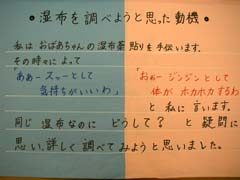 ・湿布を調べようと思った動機・
私はおばあちゃんの湿布薬貼りを手伝います。
その時々によって
「ああースゥーとして
気持ちがいいわ」
「おぉージンジンとして
体がホカホカするわ」
と私に言います。
同じ湿布なのにどうして?と疑問に
思い、詳しく調べてみようと思いました。